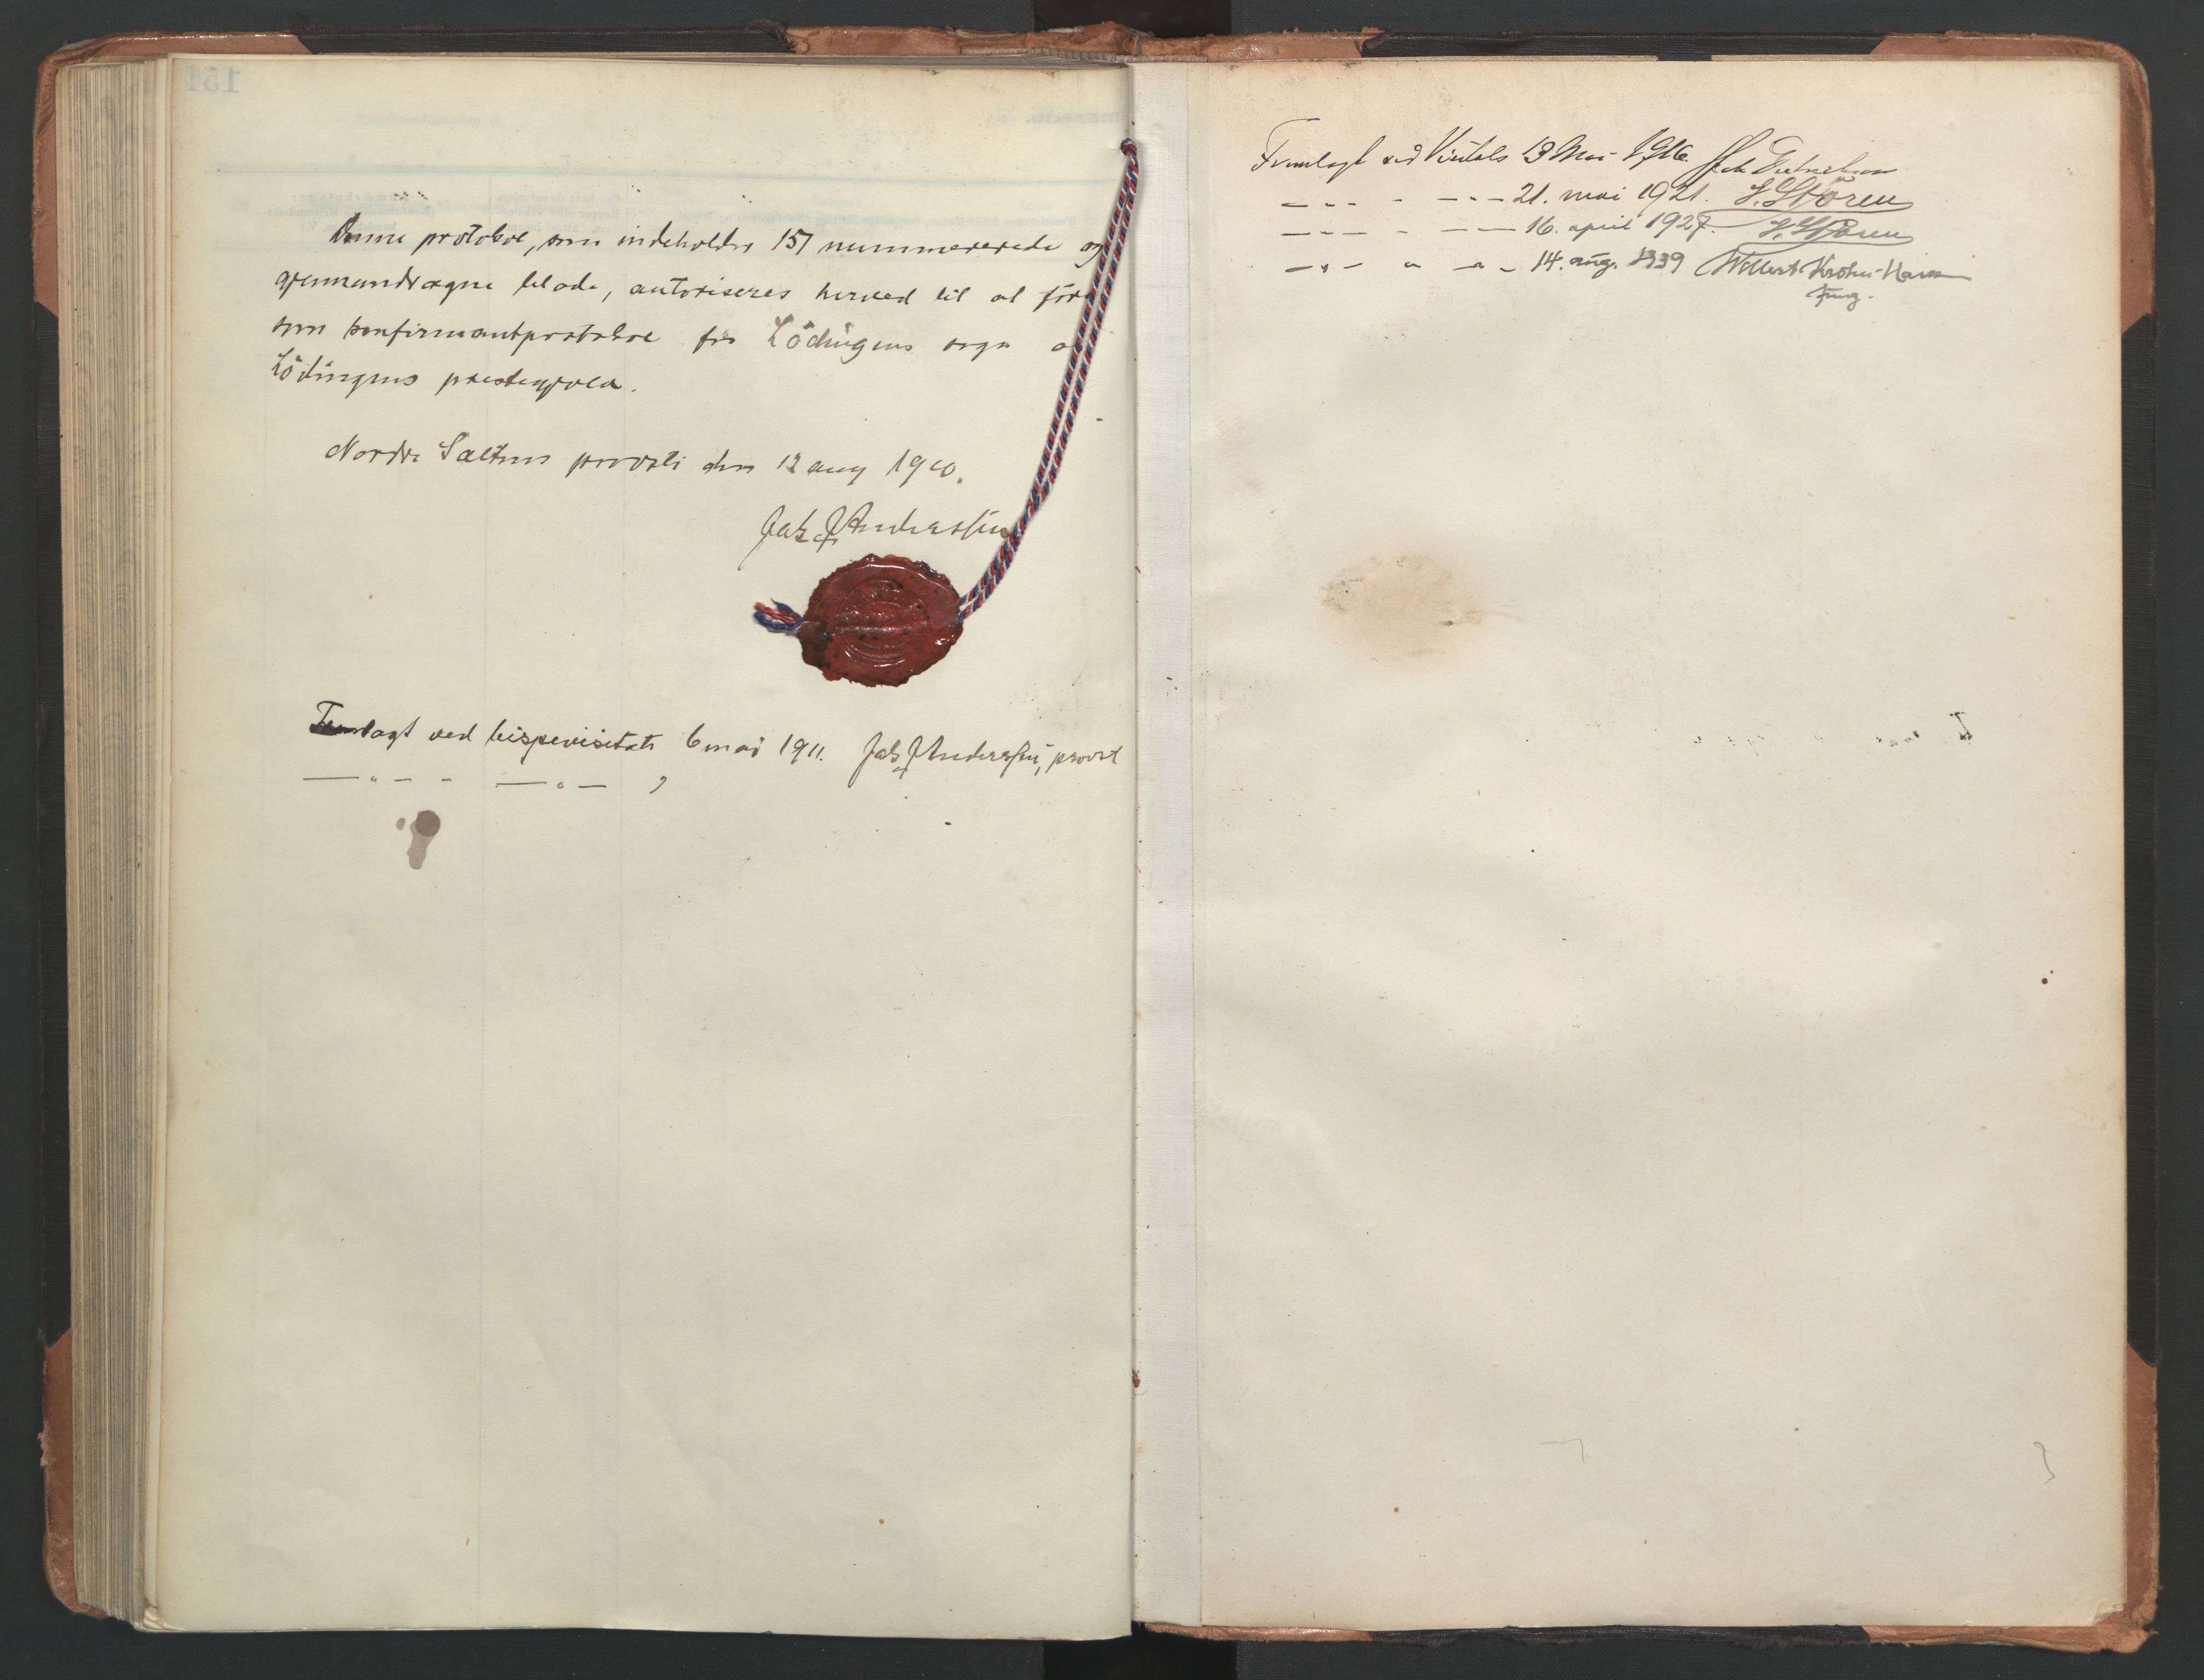 151
Denne protokol, som indeholder 151 nummererede og
gjennemdragne blade, autoriseres herved til at føre
som konfirmantprotokol for Lödingens sogn a
Lödingens prestegjeld.
Nordre Saltens provsti den 12 aug 1910.
Jak J Anderssen
Fremlagt ved bispevisitats 6 mai 1911. Jak J Anderssen, provst
— " — - — " — ,
Fremlagt ved Visitats 13 Mai 1916.
— - - - - - - 21. mai 1921. S. Stören
— - — - — - — 16. april 1927. S. Stören
— " — " — " — 14. aug. 1939 Willert Krohn-Hansen
fung.